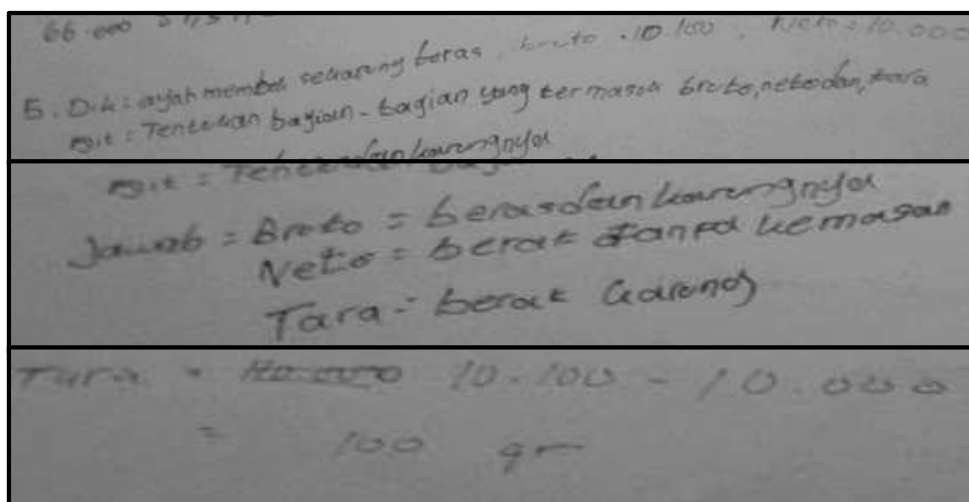 66.000
5. Dik : ayah membeli sekarung beras, bruto = 10.100, Neto = 10.000
Dit = Tentukan bagian-bagian yang termasuk bruto, neto dan, tara
Dit =
Jawab = Bruto = beras dan karungnya
Neto = berat tanpa kemasan
Tara = berat karung
Tara = 10.100 - 10.000
= 100 gr